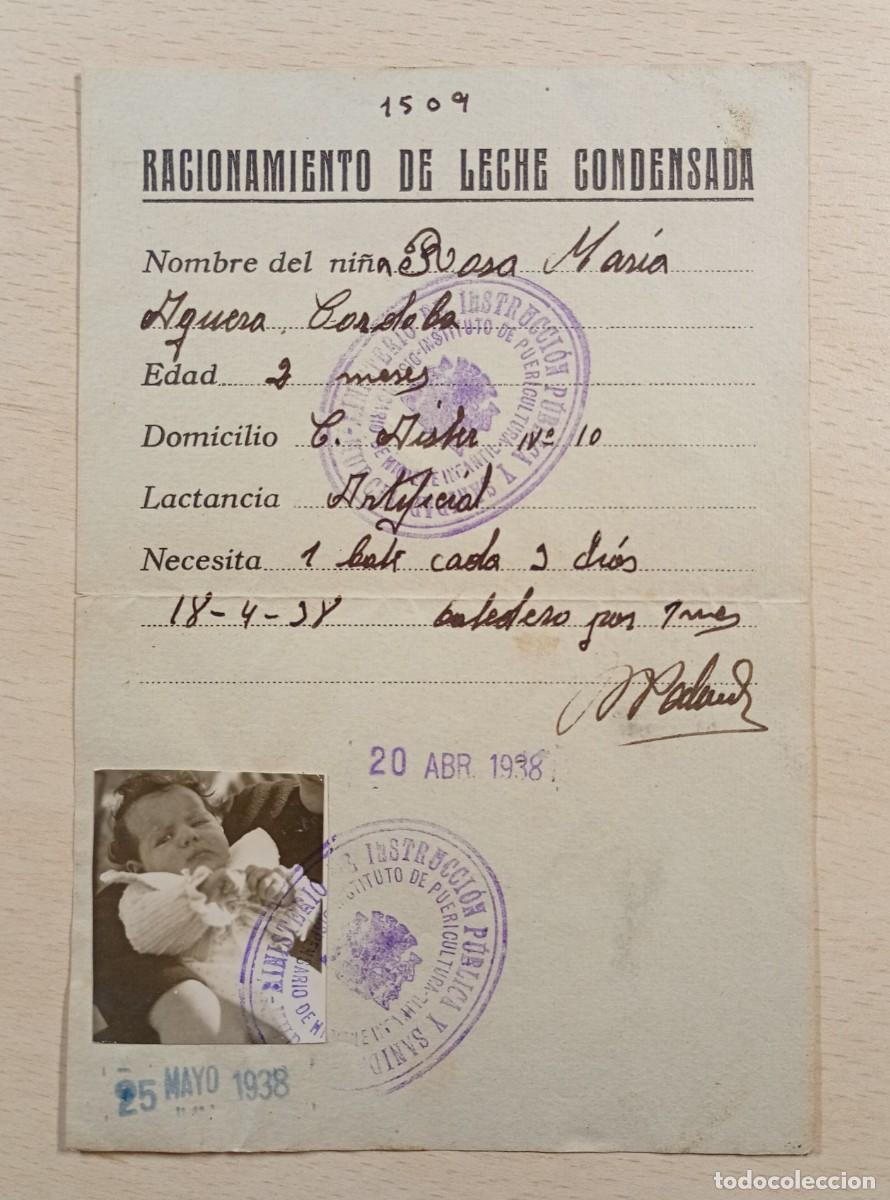 1509
RACIONAMIENTO DE LECHE CONDENSADA
Nombre del niñ Rosa María
Aguera Cordoba
Edad 2 meses
Domicilio C. Nº 10
Lactancia Artificial
Necesita 1 bote cada 3 días
18-4-38 baledero por 1 mes
20 ABR. 1938
MINISTERIO DE INSTRUCCIÓN PÚBLICA Y SANIDAD
INSTITUTO DE PUERICULTURA
DE HIGIENE INFANTIL
MINISTERIO DE INSTRUCCIÓN PÚBLICA Y SANID
INSTITUTO DE PUERICULTURA
25 MAYO 1938
todocoleccion